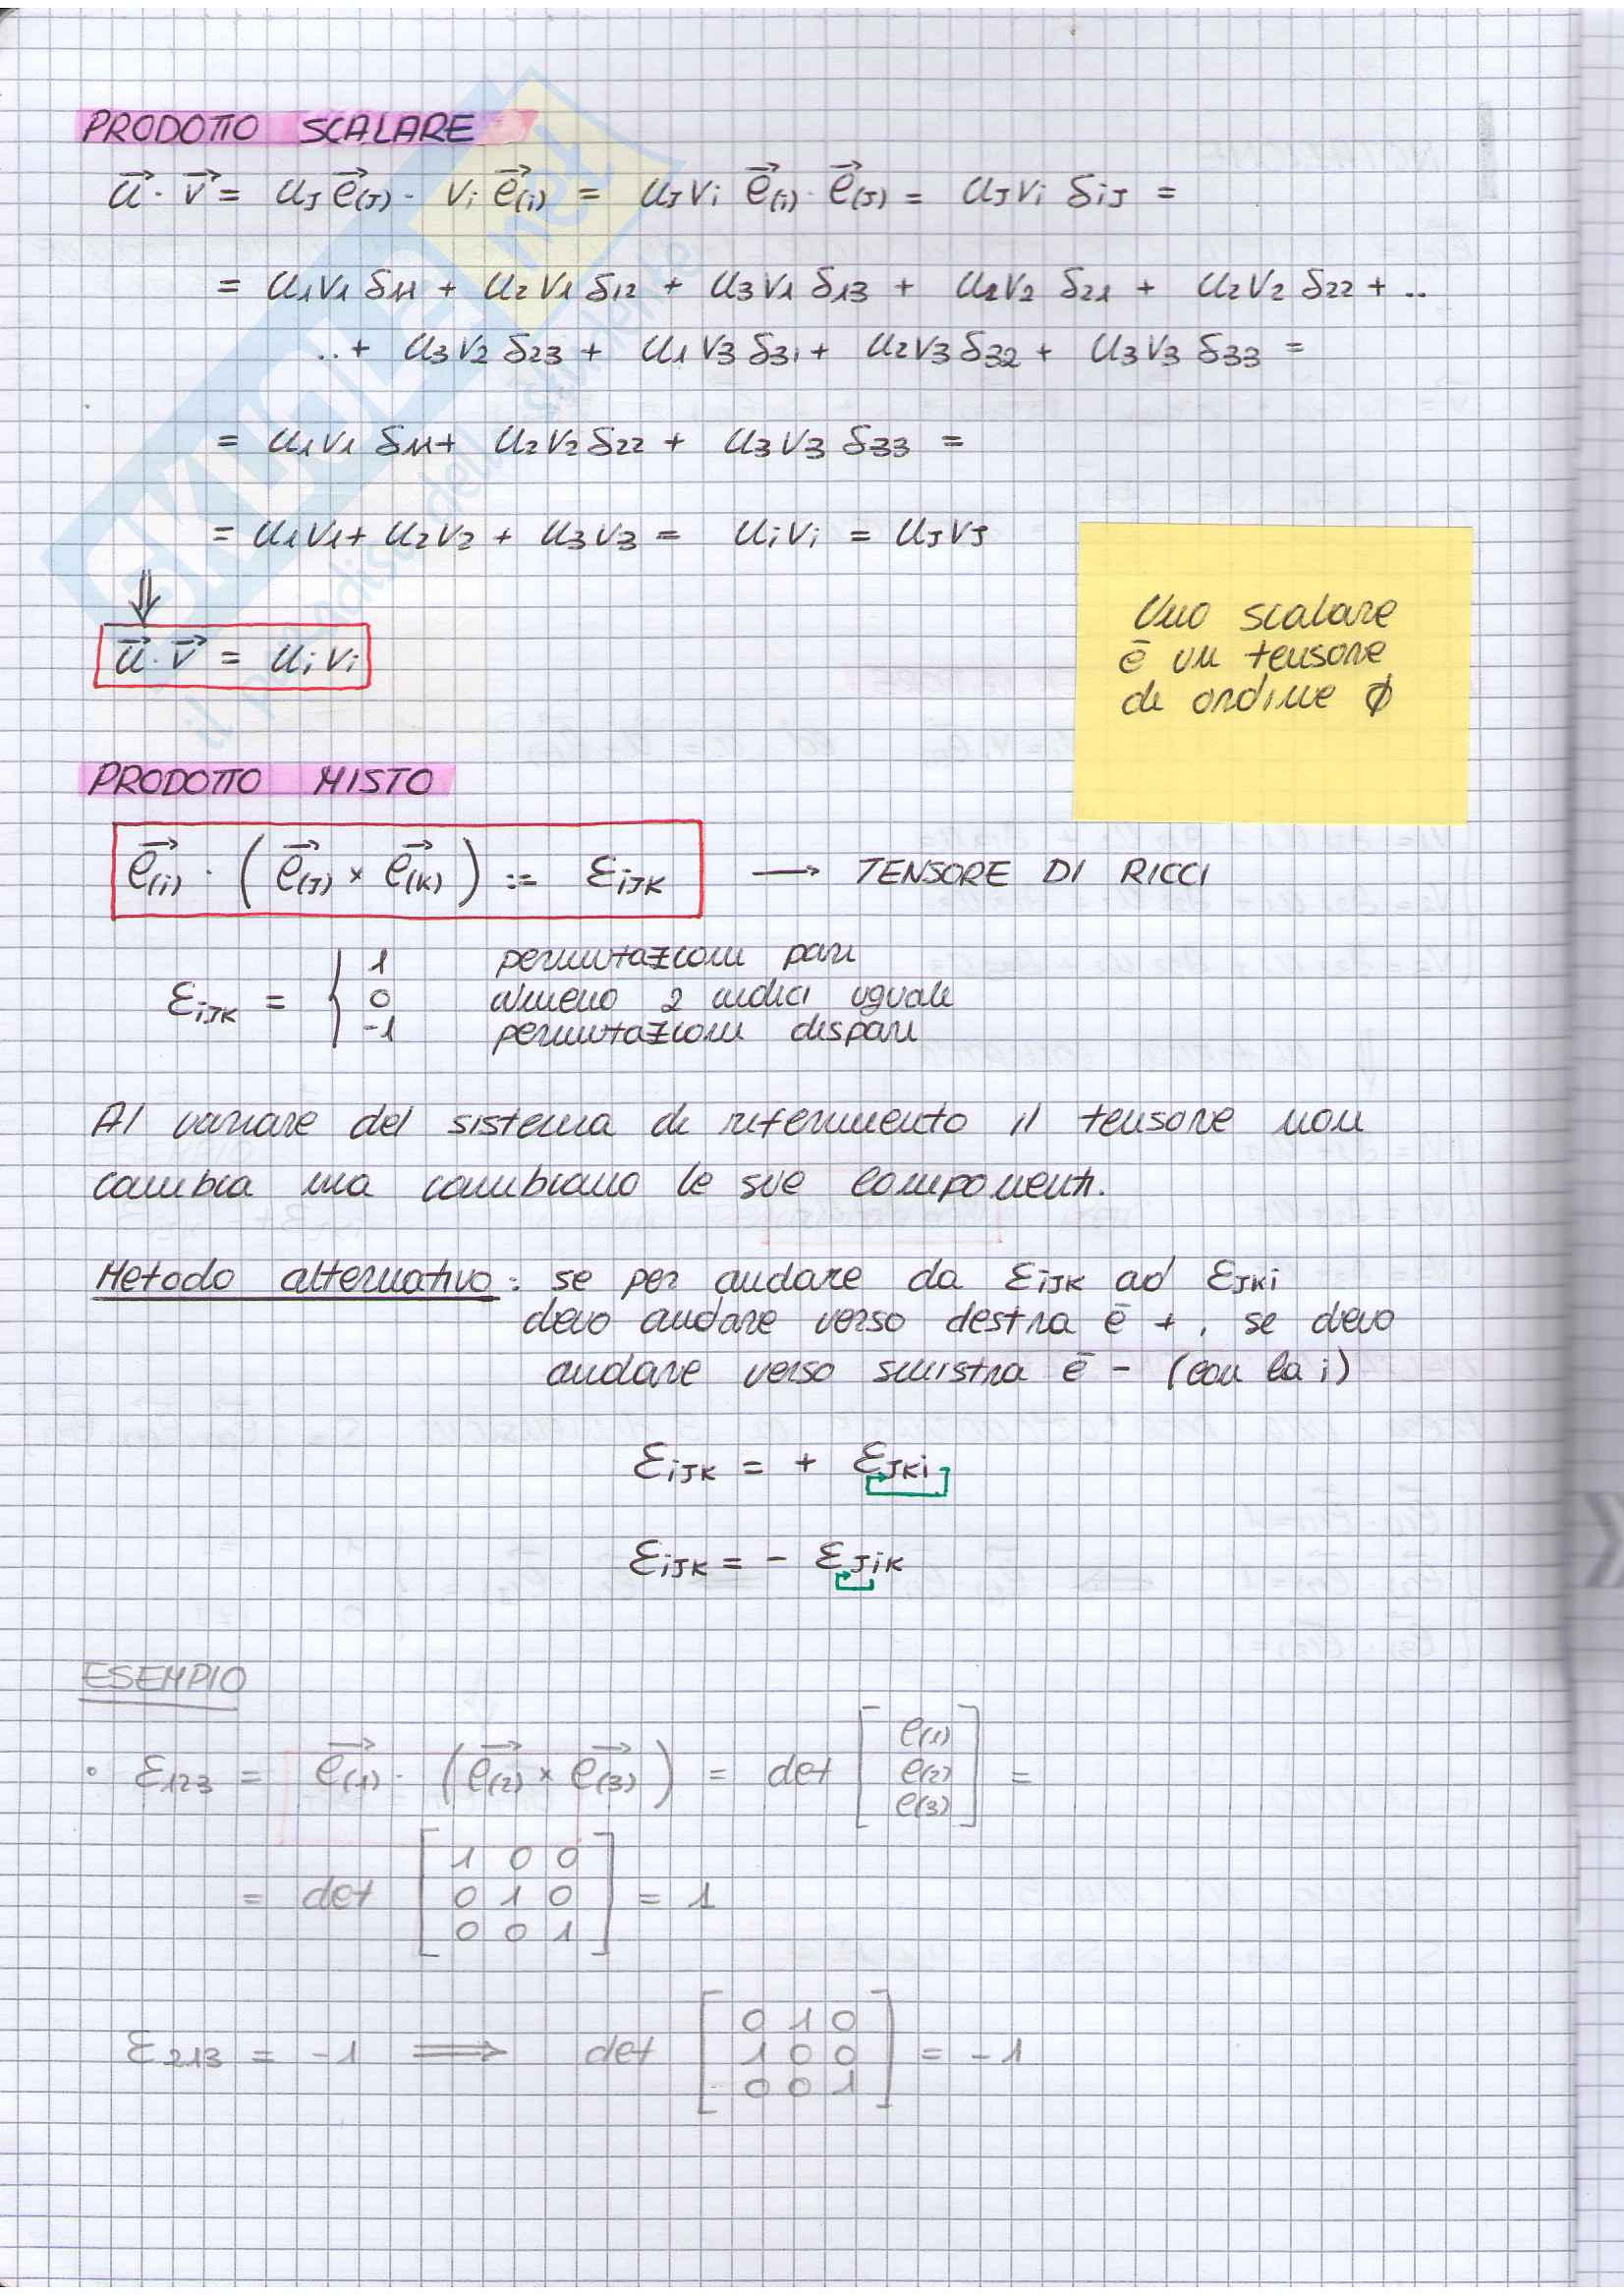 PRODOTTO SCALARE
u⃗ · v⃗ = uJ e⃗(J) · vi e⃗(i) = uJvi e⃗(i) · e⃗(J) = uJvi δiJ =
= u1v1 δ11 + u2v1 δ12 + u3v1 δ13 + u1v2 δ21 + u2v2 δ22 + ..
..+ u3v2 δ23 + u1v3 δ31 + u2v3 δ32 + u3v3 δ33 =
= u1v1 δ11 + u2v2 δ22 + u3v3 δ33 =
= u1v1 + u2v2 + u3v3 = uivi = uJvJ
⇓
u⃗ · v⃗ = uivi
Uno scalare
è un tensore
di ordine ∅
PRODOTTO MISTO
e⃗(i) · ( e⃗(J) × e⃗(K) ) := εiJK → TENSORE DI RICCI
εiJK = { 1 permutazioni pari
0 almeno 2 indici uguali
-1 permutazioni dispari
Al variare del sistema di riferimento il tensore non
cambia ma cambiano le sue componenti.
Metodo alternativo: se per andare da εiJK ad εJKi
devo andare verso destra è +, se devo
andare verso sinistra è - (con la i)
εiJK = + εJKi
εiJK = - εJiK
ESEMPIO
· ε123 = e⃗(1) · (e⃗(2) × e⃗(3)) = det [ e(1)
e(2)
e(3) ] =
= det [ 1 0 0
0 1 0
0 0 1 ] = 1
ε213 = -1 ⟹ det [ 0 1 0
1 0 0
0 0 1 ] = -1